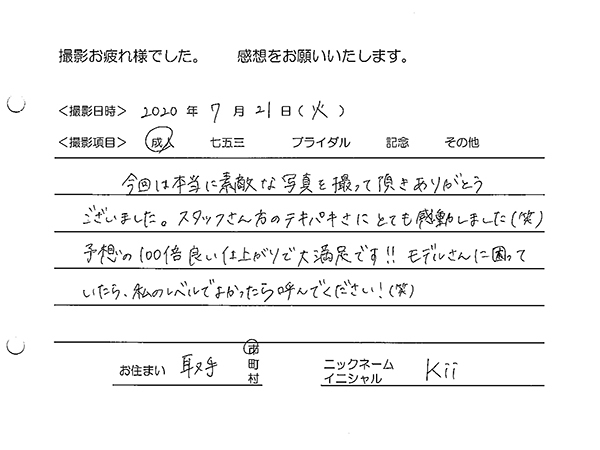 撮影お疲れ様でした。 感想をお願いいたします。
<撮影日時> 2020 年 7 月 21 日(火)
<撮影項目> 成人 七五三 ブライダル 記念 その他
今回は本当に素敵な写真を撮って頂きありがとう
ございました。スタッフさん方のテキパキさにとても感動しました(笑)
予想の100倍良い仕上がりで大満足です!! モデルさんに困って
いたら、私のレベルでよかったら呼んでください!(笑)
お住まい 取手 市町村 ニックネーム イニシャル Kii